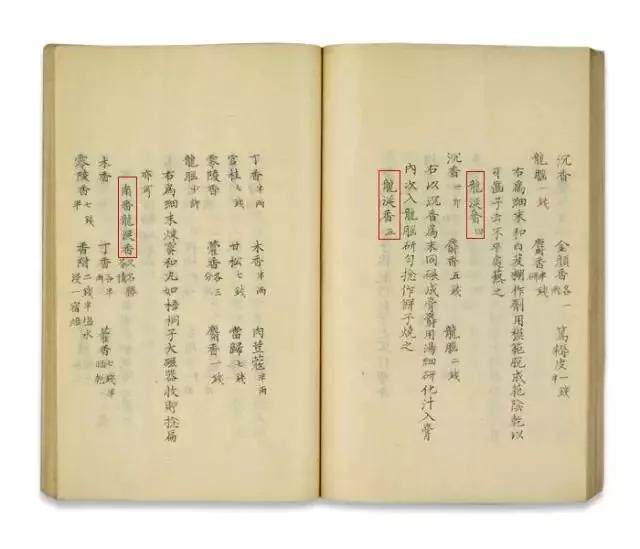 沉香 金顏香各一兩 篤耨皮一錢半
龍腦一錢 麝香半錢
右為細末和白芨糊作劑用模範脫成花陰乾以
牙齒子去不平處爇之
龍涎香四
沉香一斤 麝香五錢 龍腦二錢
右以沉香為末同碾成膏麝用湯細研化汁入膏
內次入龍腦研勻捻作餅子燒之
龍涎香五
丁香半兩 木香半兩 肉荳蔻半兩
官桂七錢 甘松七錢 當歸七錢
零陵香 藿香各三分 麝香一錢
龍腦少許
右為細末煉蜜和丸如梧桐子大磁器收貯捻扁
亦可
南番龍涎香又名勝
木香 丁香各半兩 藿香七錢半晒乾
零陵香七錢半 香附二錢半塩水浸一宿焙